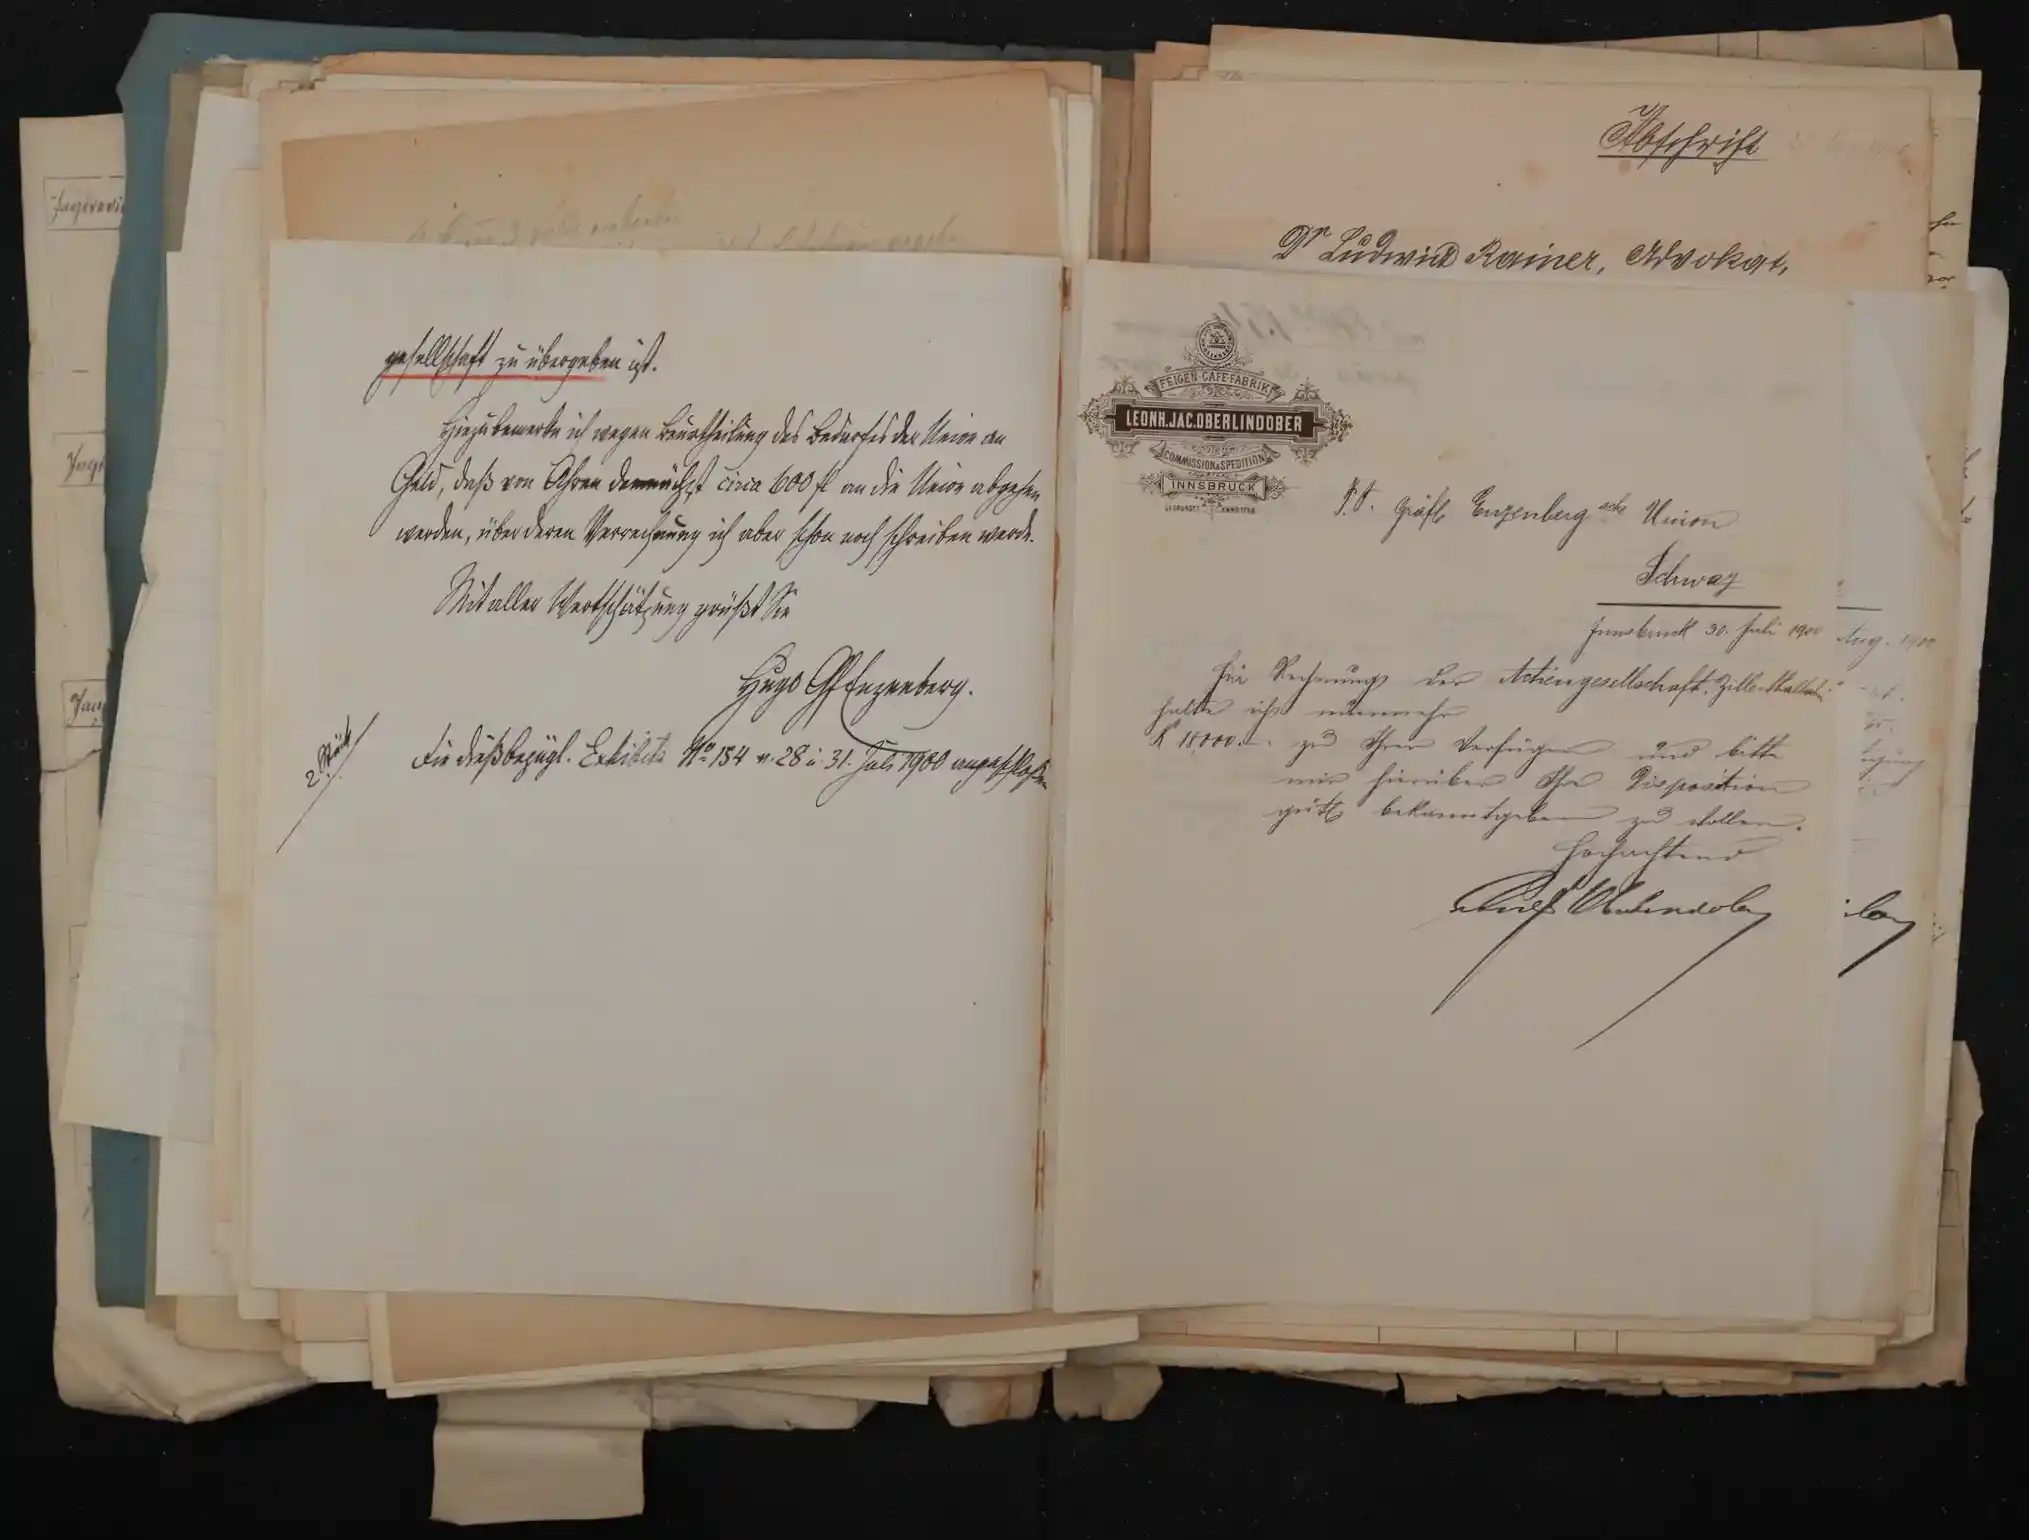 gesellschaft zu übergeben ist.
Hiezu bemerke ich wegen Beurtheilung des Bedarfes der Union an
Geld, daß von Ahren demnächst circa 600 fl an die Union abgehen
werden, über deren Verrechnung ich aber schon noch schreiben werde.
Mit aller Wertschätzung grüßt Sie
Hugo Gf Enzenberg.
2 Stück
Die dießbezügl. Exhibite No 154 v. 28 u. 31. Juli 1900 angeschlossen
Abschrift
Dr Ludwig Rainer, Advokat,
FEIGEN-CAFE-FABRIK
LEONH. JAC. OBERLINDOBER
COMMISSION & SPEDITION
INNSBRUCK
GEGRÜNDET ANNO 1788
P.T. Gräfl Enzenberg'sche Union
Schwaz
Innsbruck 30. Juli 1900
Für Rechnung der Actiengesellschaft Zillerthalbahn
halte ich nunmehr
K 18,000.- zu Ihrer Verfügung und bitte
mir hierüber Ihre Disposition
gütl bekanntgeben zu wollen.
Hochachtend
Oberlindober
Aug. 1900